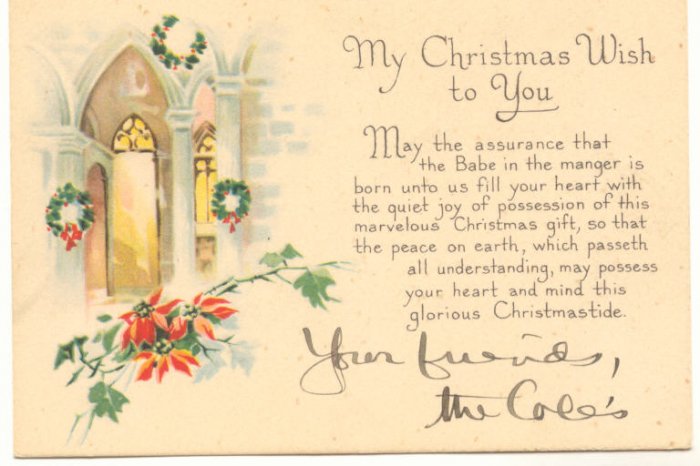 My Christmas Wish
to You
May the assurance that
the Babe in the manger is
born unto us fill your heart with
the quiet joy of possession of this
marvelous Christmas gift, so that
the peace on earth, which passeth
all understanding, may possess
your heart and mind this
glorious Christmastide.
Your friends,
the Cole's